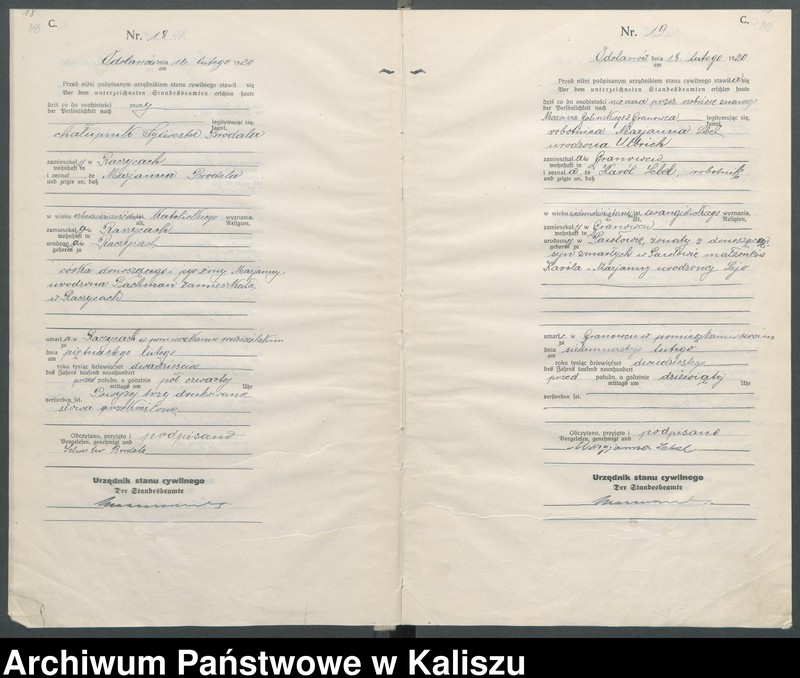 C.
Nr. 18
Odolanów dnia 16. lutego 1920
am
Przed niżej podpisanym urzędnikiem stanu cywilnego stawił się
Vor dem unterzeichneten Standesbeamten erschien heute
dziś co do osobistości znany
der Persönlichkeit nach
legitymując się,
kannt,
chałupnik Sylwester Brodala
zamieszkały w Raczycach
wohnhaft in
i zeznał, że Marjanna Brodala
und zeigte an, daß
w wieku katolickiego wyznania,
alt, Religion,
zamieszkała w Raczycach
wohnhaft in
urodzona w Raczycach
geboren zu
córka donoszącego i jego żony Marjanny
urodzona Lachman zamieszkała
w Raczycach
umarła w Raczycach w pomieszkaniu rodzicielskim
zu
dnia piętnastego lutego
am
roku tysiąc dziewięćset dwudziestego
des Jahres tausend neunhundert
przed połudn. o godzinie pół czwartej
mittags um Uhr
Powyżej trzy drukowane
verstorben sei.
słowa przekreślono
Odczytano, przyjęto i podpisano
Vorgelesen, genehmigt und
Brodala
Urzędnik stanu cywilnego
Der Standesbeamte
C.
Nr. 19
Odolanów dnia 18. lutego 1920
am
Przed niżej podpisanym urzędnikiem stanu cywilnego stawiła się
Vor dem unterzeichneten Standesbeamten erschien heute
dziś co do osobistości przez osobiście znanego
der Persönlichkeit nach
z Granowca legitymując się,
kannt,
robotnica Marjanna
urodzona Ulbrich
zamieszkała w Granowcu
wohnhaft in
i zeznała, że Karól robotnik
und zeigte an, daß
w wieku ewangielickiego wyznania,
alt, Religion,
zamieszkały w Granowcu
wohnhaft in
urodzony w żonaty z donoszącą
geboren zu
syn zmarłych w małżonków
Karóla i Marjanny urodzonej
umarł w Granowcu w pomieszkaniu swoim
zu
dnia siedemnastego lutego
am
roku tysiąc dziewięćset dwudziestego
des Jahres tausend neunhundert
przed połudn. o godzinie dziewiątej
mittags um Uhr
verstorben sei.
Odczytano, przyjęto i podpisano
Vorgelesen, genehmigt und
Marjanna
Urzędnik stanu cywilnego
Der Standesbeamte
Archiwum Państwowe w Kaliszu